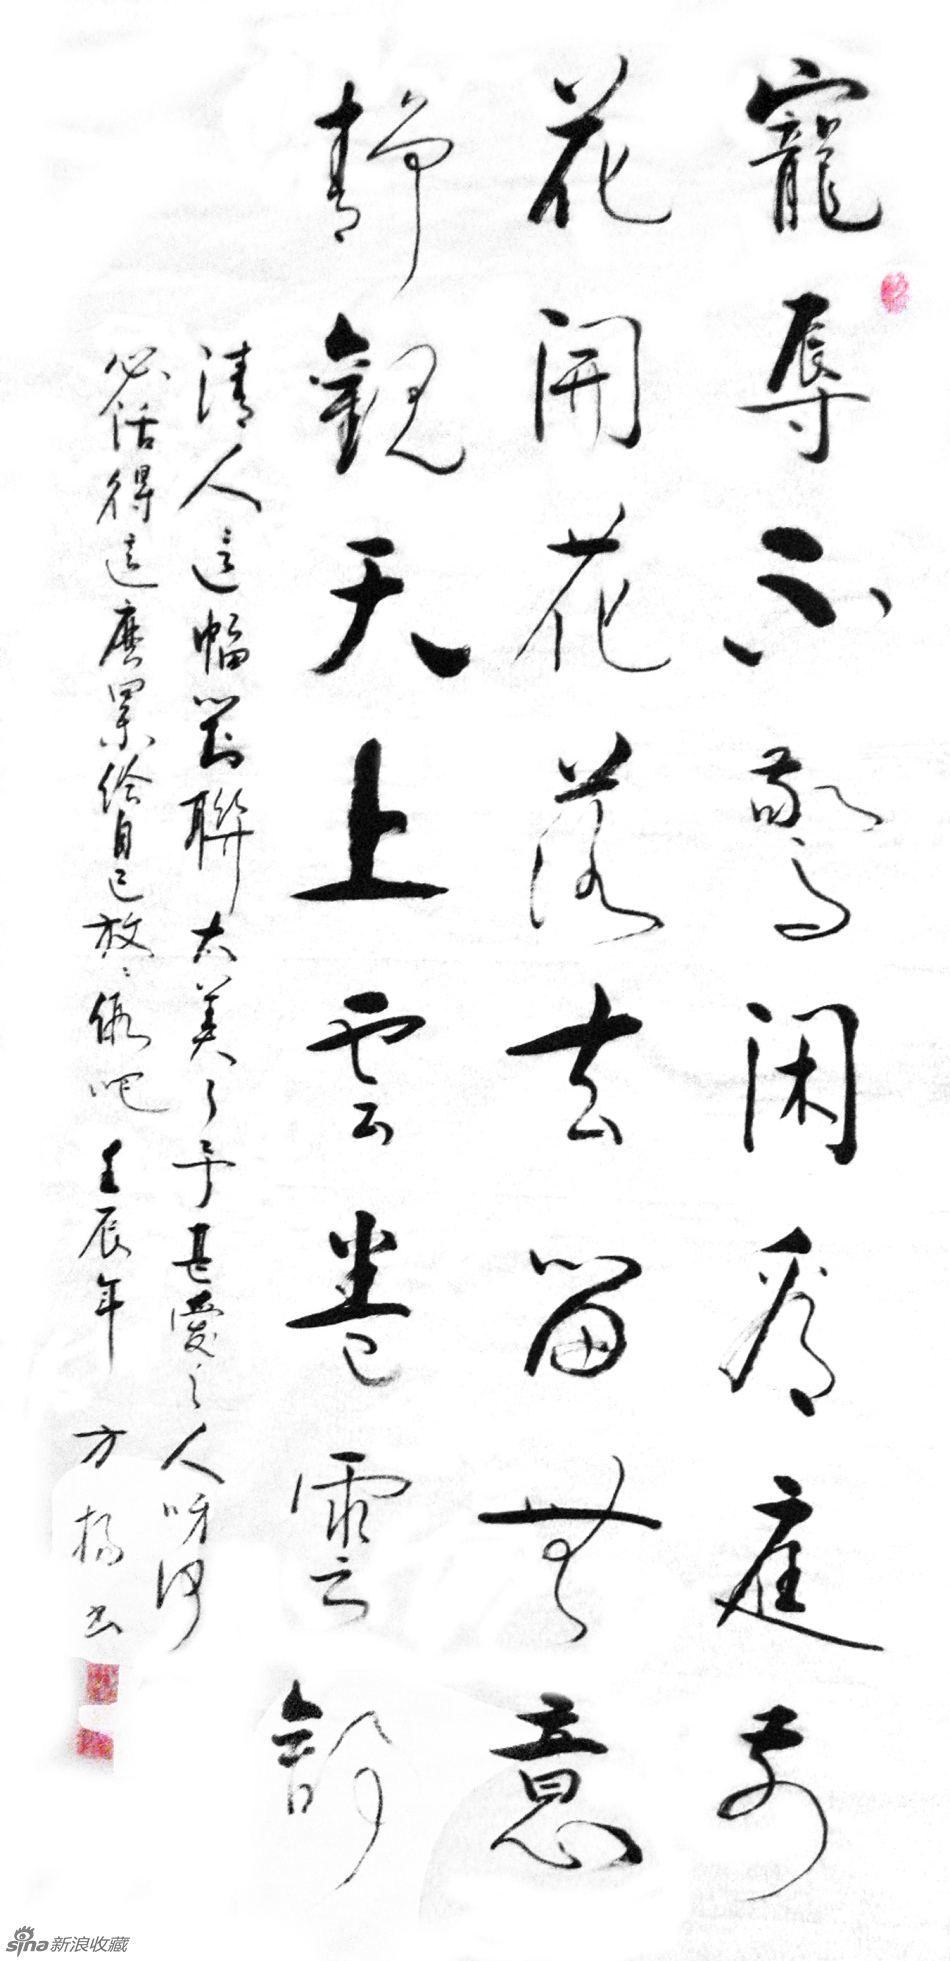 寵辱不驚閑看庭前
花開花落去留無意
靜觀天上雲卷雲舒
清人這幅對聯太美了予甚愛之人呀何
必活得這麼累給自己放々假吧 壬辰年 方楊书
sina新浪收藏